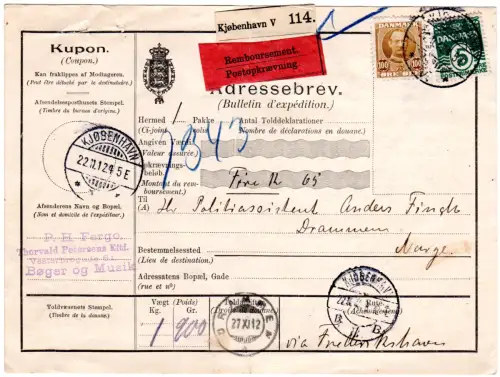 Kjøbenhavn V 114.
Remboursement.
Postopkrævning.
DANMARK
100 100
ØRE
5
Kupon.
(Coupon.)
Kan fraklippes af Modtageren.
(Peut être détaché par le destinataire.)
Afsendelsesposthusets Stempel.
(Timbre du bureau d'origine.)
KJØBENHAVN
22.11.12 4-5 E
Afsenderens Navn og Bopæl.
(Nom et domicile de l'expéditeur.)
P. H. Fergo.
Thorvald Petersens Eftf.
Bøger og Musik
Toldvæsenets Stempel.
(Timbre de la douane.)
Adressebrev.
(Bulletin d'expédition.)
Hermed 1 Pakke Antal Tolddeklarationer
(Ci-joint Nombre de déclarations en douane.)
1343
Angiven Værdi
Valeur assurée.
opkrævnings-
beløb.
Montant du rem-
boursement.)
Fire Kr 65
Til
(A)
Hr Politiassistent Anders Fingh
Drammen
Norge.
Bestemmelsessted
(Lieu de destination.)
Adressatens Bopæl, Gade
(rue et nº)
Vægt (Poids)
Kg. Gr.
1 900
27 XI 12
KJØBENHAVN
via Frederikshavn